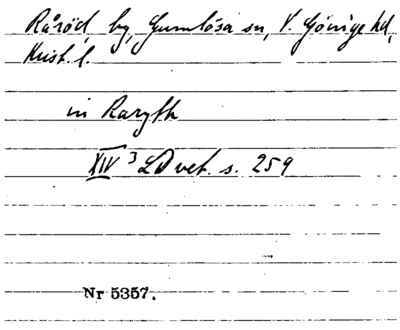 Råröd, by, Gumlösa sn, V. Göinge hd,
Krist. l.
in Raryth
XIV 3 LDvet. s. 259
Nr 5357.